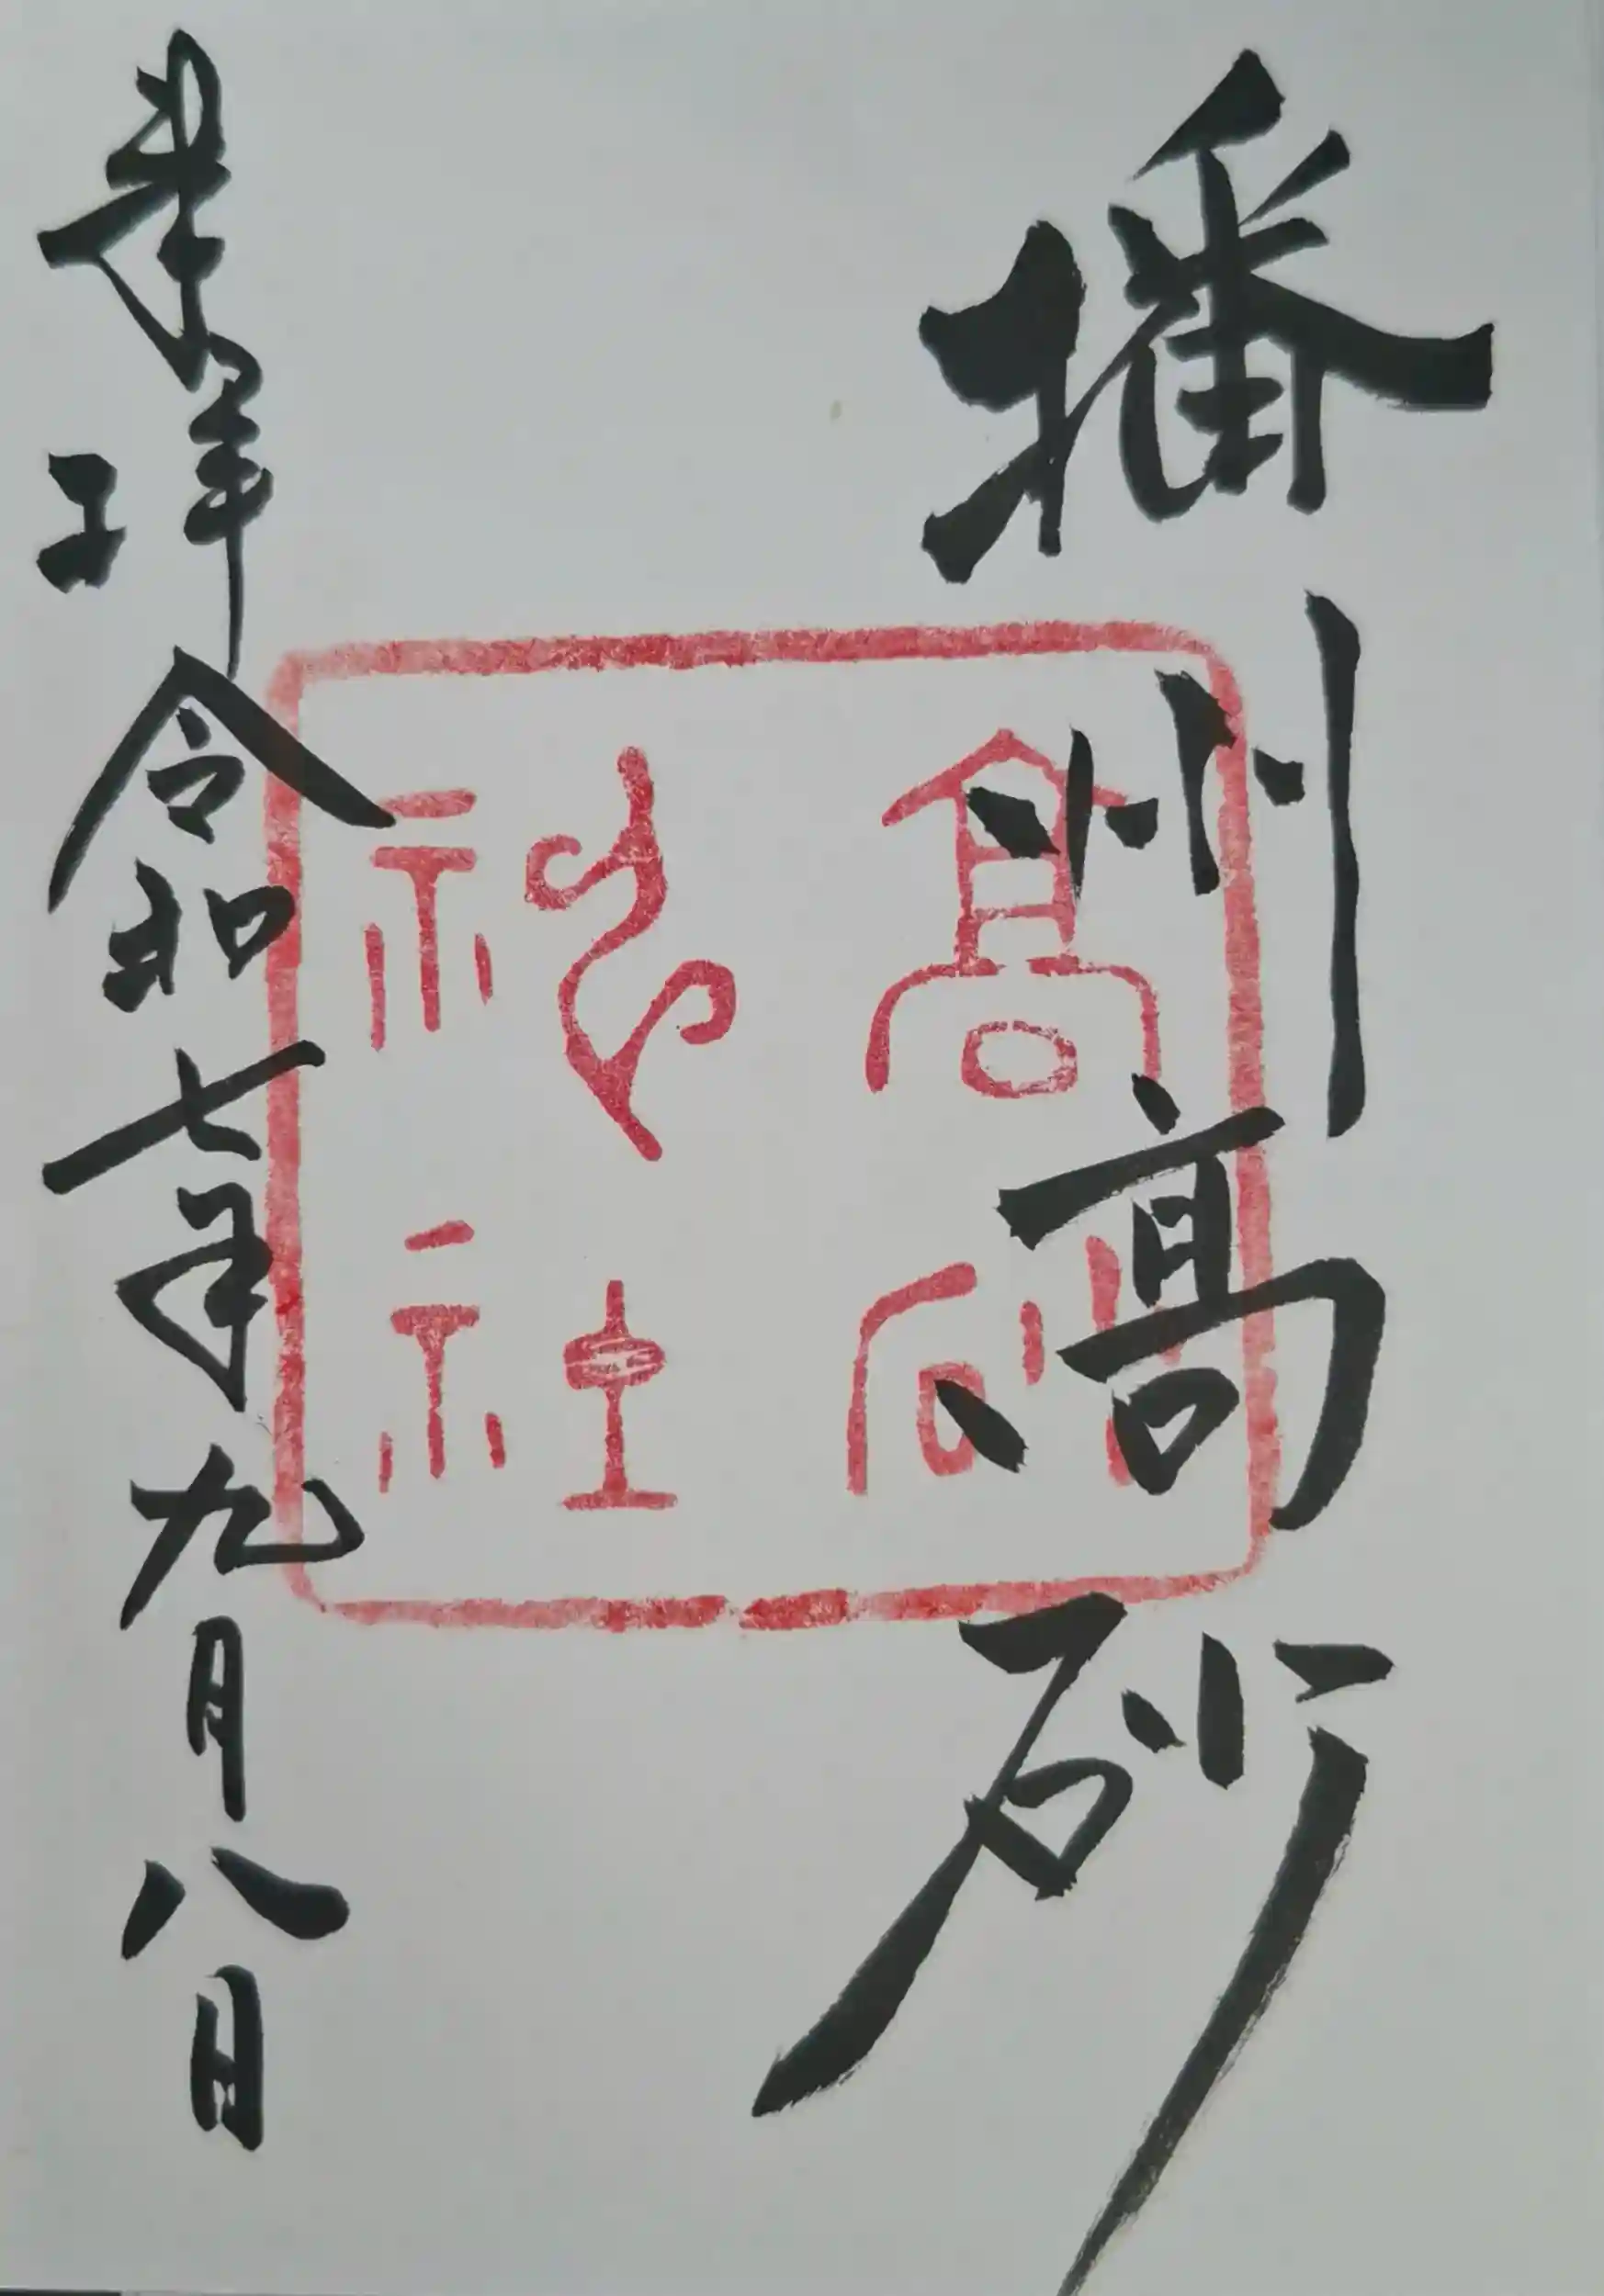 播州高砂
髙砂
神社
奉拝 令和七年九月八日